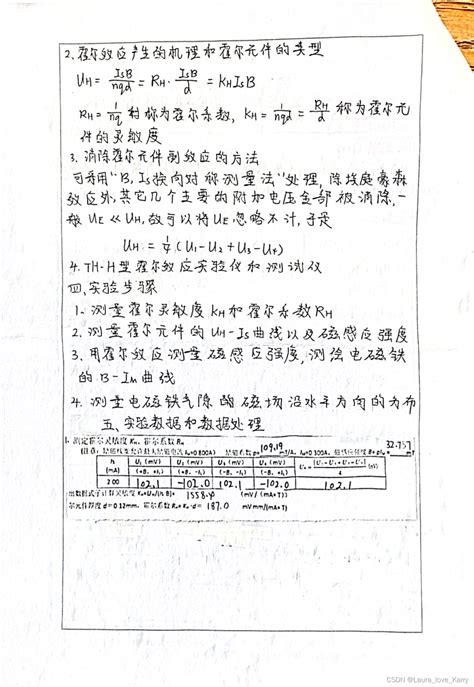 2.霍尔效应产生的机理和霍尔元件的类型
UH = IsB/nqd = RH · IsB/d = KHIsB
RH = 1/nq 称为霍尔系数, KH = 1/nqd = RH/d 称为霍尔元
件的灵敏度
3. 消除霍尔元件副效应的方法
可采用"B,Is换向对称测量法"处理,除埃庭豪森
效应外,其它几个主要的附加电压全部被消除,一
般UE≪UH,故可以将UE忽略不计,于是
UH = 1/4 (U1-U2+U3-U4)
4. TH-H型霍尔效应实验仪和测试仪
四、实验步骤
1. 测量霍尔灵敏度KH和霍尔系数RH
2. 测量霍尔元件的UH-Is曲线以及磁感应强度
3. 用霍尔效应测量磁感应强度,测绘电磁铁
的B-Im曲线
4. 测量电磁铁气隙的磁场沿水平方向的分布
五、实验数据和数据处理
1. 测定霍尔灵敏度 KH、霍尔系数 RH
109.19 mT/A, IM=0.300A, 32.757 mT
Is (mA) U1 (mV) U2 (mV) U3 (mV) U4 (mV) (mV)
(+B, +Is) (-B, +Is) (-B, -Is) (+B, -Is) 4
2.00 102.1 -102.0 102.1 -102.0 102.1
1558.4 (mV/(mA•T))
尔元件厚度 d=0.12mm, 霍尔系数 RH=KH·d= 187.0 mV·mm/(mA•T)
CSDN @Laura_love_Karry